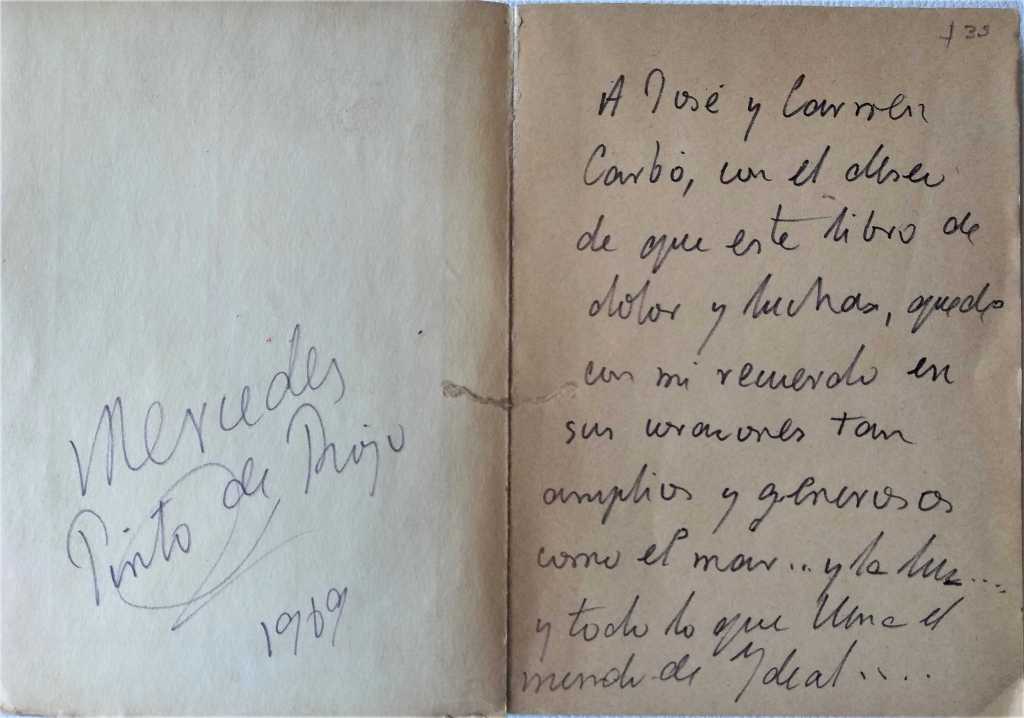 Mercedes
Pinto de Rojo
1969
A José y Carmen
Carbó, con el deseo
de que este libro de
dolor y luchas, quede
con mi recuerdo en
sus corazones tan
amplios y generosos
como el mar... y la luz....
y todo lo que llena el
mundo de Ydeal.....